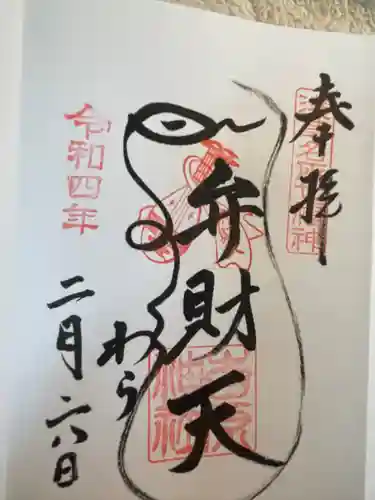 奉拝
弁財天
わら
令和四年
二月二八日